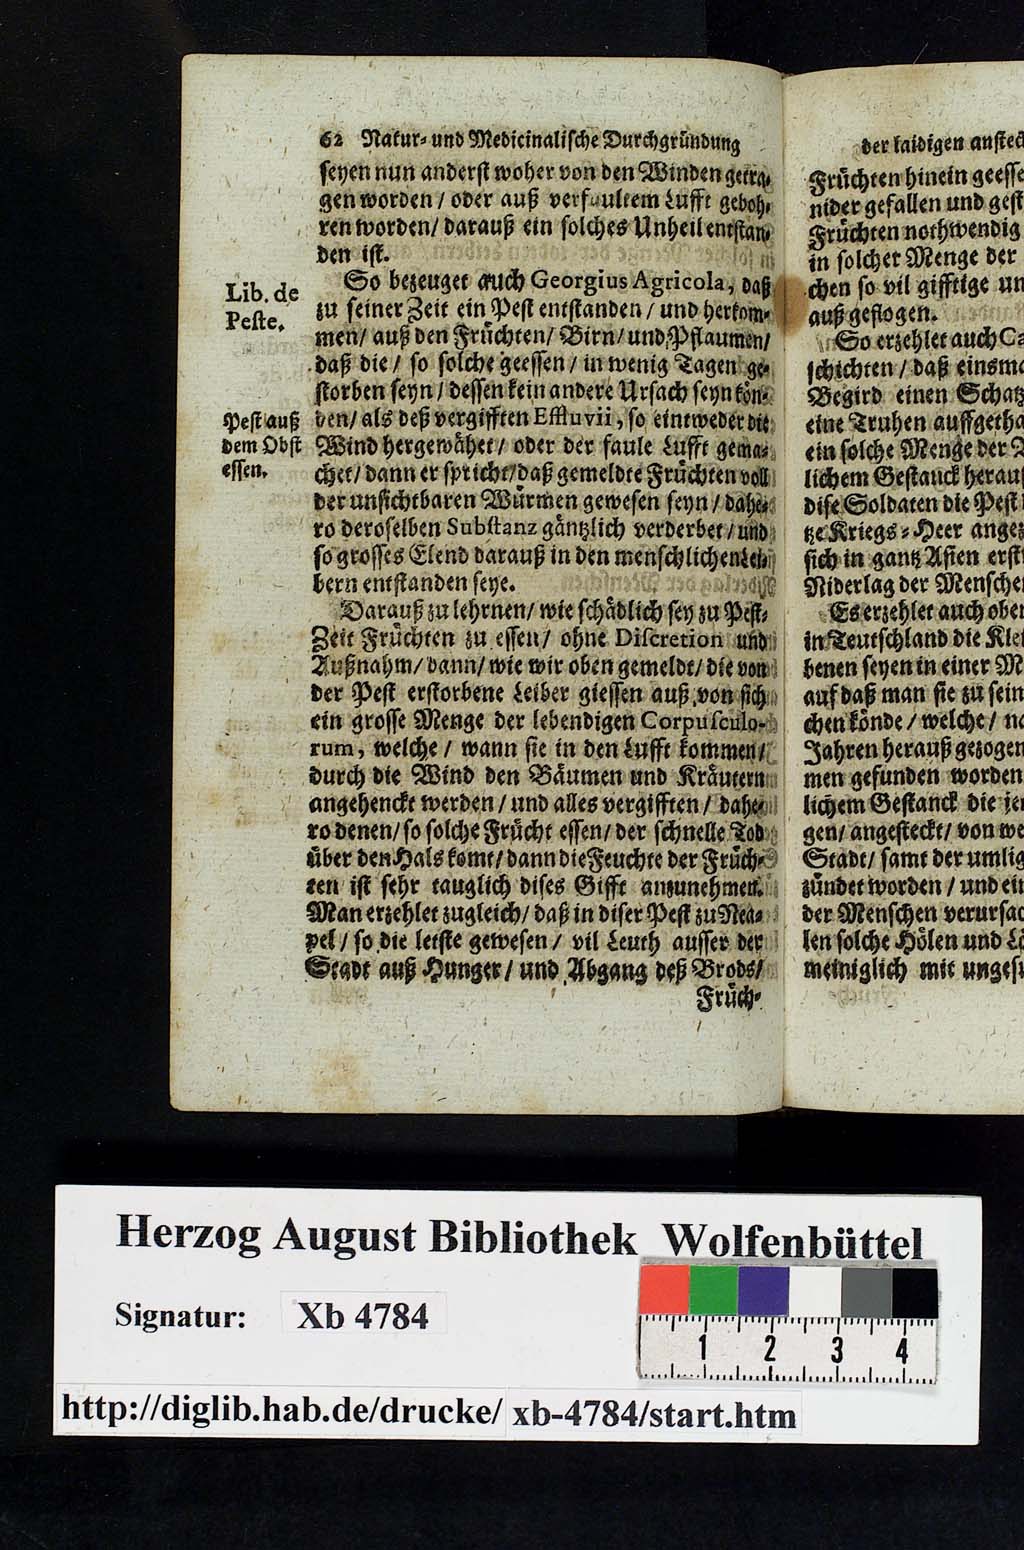 62 Natur- und Medicinalische Durchgründung
seyen nun anderst woher von den Winden getra-
gen worden / oder auß verfaultem Lufft geboh-
ren worden / darauß ein solches Unheil entstan-
den ist.
So bezeuget auch Georgius Agricola, daß
Lib. de
Peste.
zu seiner Zeit ein Pest entstanden / und herkom-
men / auß den Früchten / Birn / und Pflaumen /
daß die / so solche geessen / in wenig Tagen ge-
storben seyn / dessen kein andere Ursach seyn kön-
Pest auß
dem Obst
essen.
den / als deß vergifften Effluvii, so eintweder die
Wind hergewähet / oder der faule Lufft gema-
chet / dann er spricht / daß gemeldte Früchten voll
der unsichtbaren Würmen gewesen seyn / dahe-
ro deroselben Substanz gäntzlich verderbet / und
so grosses Elend darauß in den menschlichen Lei-
bern entstanden seye.
Darauß zu lehrnen / wie schädlich sey zu Pest-
Zeit Früchten zu essen / ohne Discretion und
Außnahm / dann / wie wir oben gemeldt / die von
der Pest erstorbene Leiber giessen auß von sich
ein grosse Menge der lebendigen Corpusculo-
rum, welche / wann sie in den Lufft kommen /
durch die Wind den Bäumen und Kräutern
angehenckt werden / und alles vergifften / dahe-
ro denen / so solche Frücht essen / der schnelle Tod
über den Hals komt / dann die Feuchte der Früch-
ten ist sehr tauglich dises Gifft anzunehmen.
Man erzehlet zugleich / daß in diser Pest zu Nea-
pel / so die letste gewesen / vil Leuth ausser der
Stadt auß Hunger / und Abgang deß Brods /
Früch-
der laidigen ansteck
Früchten hinein geesse
nider gefallen und gest
Früchten nothwendig
in solcher Menge der
chen so vil gifftige un
auß geflogen.
So erzehlet auch Ca
schichten / daß einsma
Begird einen Schatz
eine Truhen auffgetha
ein solche Menge der
lichem Gestanck herauß
dise Soldaten die Pest
tze Kriegs-Heer angez
sich in gantz Asien erst
Niderlag der Mensche
Es erzehlet auch ober
in Teutschland die Klei
benen seyen in einer M
auf daß man sie zu sein
chen könde / welche / na
Jahren herauß gezogen
men gefunden worden
lichem Gestanck die jen
gen / angesteckt / von we
Stadt / samt der umlig
zündet worden / und ein
der Menschen verursac
len solche Hölen und Lö
meiniglich mit ungesu
Herzog August Bibliothek Wolfenbüttel
Signatur: Xb 4784
1 2 3 4
http://diglib.hab.de/drucke/ xb-4784/start.htm